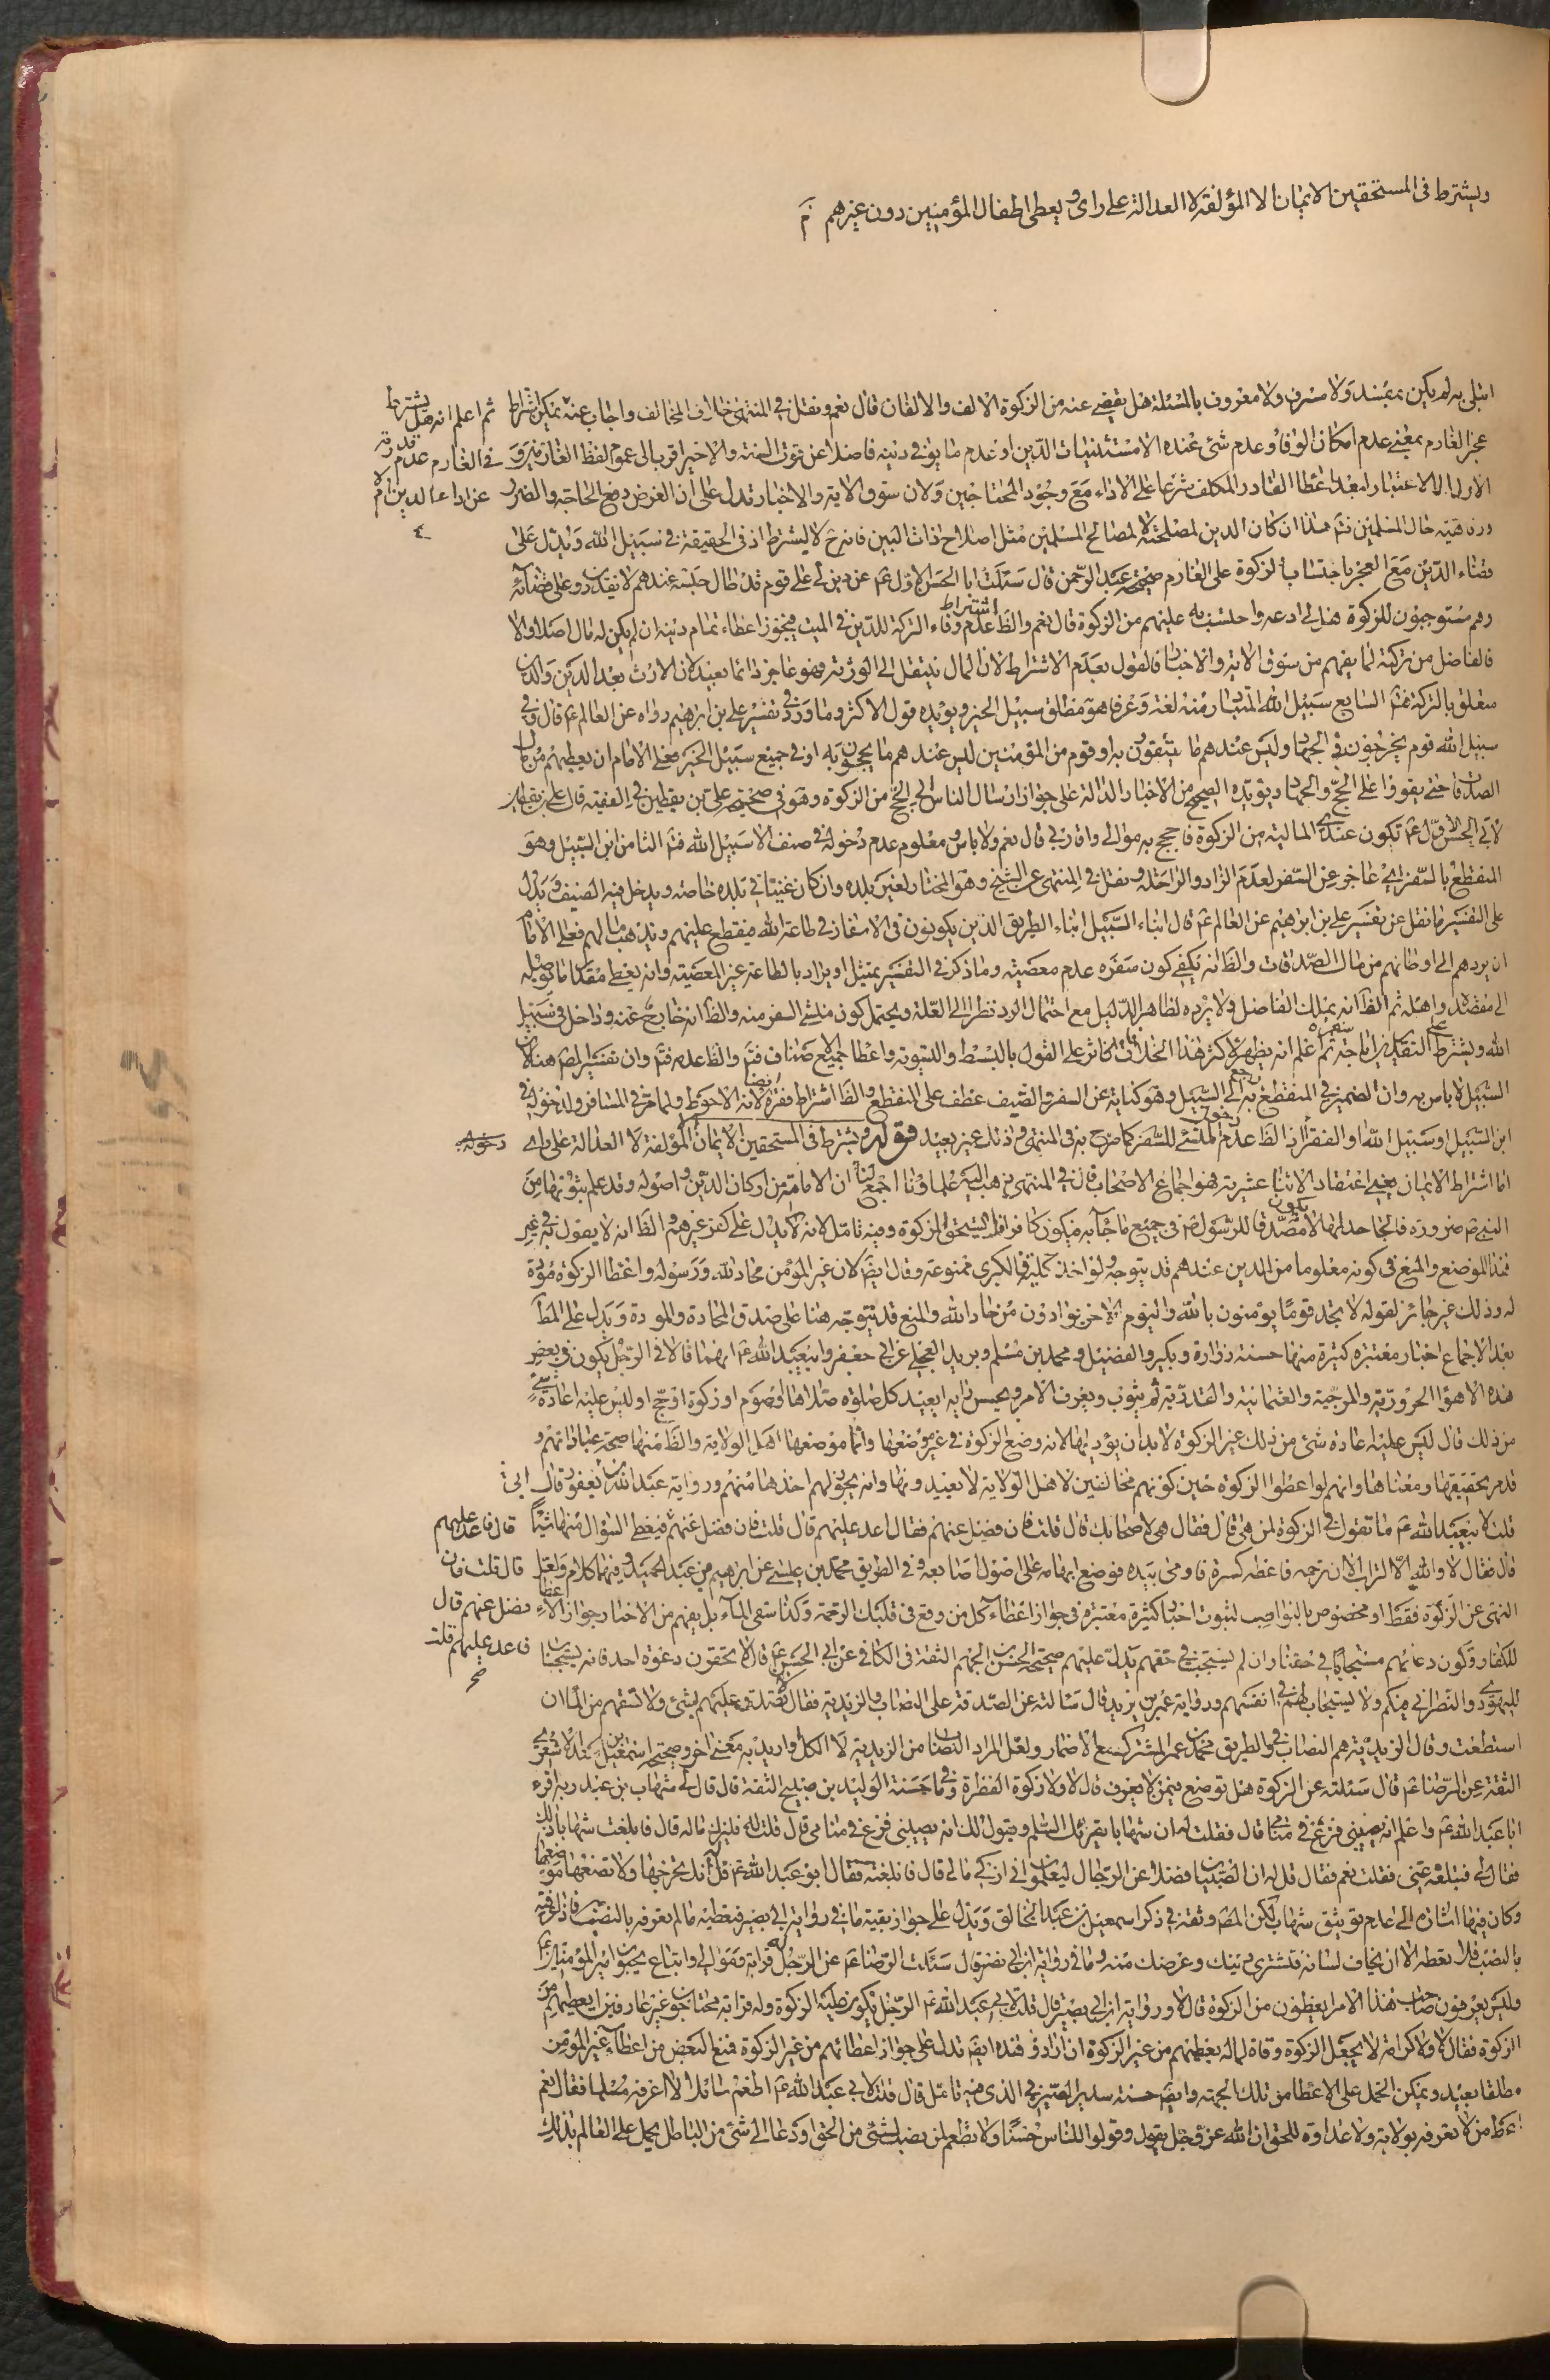 ويشترط فى المستحقين الايمان الا المؤلفة لا العدالة على راى و يعطى اطفال المؤمنين دون غيرهم م
ابتلى به لم يكن بمفسد ولا مسرف ولا معروف بالمسئلة هل يقضى عنه من الزكوة الالف والالفان قال نعم ونقل فى المنتهى خلاف المخالف واجاب عنه يمكن اشتراط
ثم اعلم انه هل يشترط
عجز الغارم بمعنى عدم امكان الوفاء وعدم شئ عنده الا مستثنيات الدين او عدم ما يوفى دينه فاضلا عن قوت السنة والاخير اقرب الى عموم لفظ الغارمين و
فى الغارم عدم قدرته
الاول الى الاعتبار لبعد اعطاء القادر المكلف شرعا على الاداء مع وجود المحتاجين ولان سوق الاية والاخبار تدل على ان الغرض دفع الحاجة والضرر
عن اداء الدين ام لا
ورفاهية حال المسلمين ثم هذا ان كان الدين لمصلحته لا لمصالح المسلمين مثل اصلاح ذات البين فانه ح لا يشترط اذ فى الحقيقة فى سبيل الله ويدل على
قضاء الدين مع العجز باحتساب الزكوة على الغارم صحيحة عبد الرحمن قال سئلت ابا الحسن الاول ع عن دين لى على قوم قد طال حبسه عندهم لا يقدرون على قضائه
وهم مستوجبون للزكوة هل لى ادعه واحتسب به عليهم من الزكوة قال نعم والظ عدم اشتراط وفاء التركة للدين فى الميت فيجوز اعطاء تمام دينه ان لم يكن له مال اصلا والا
فالفاضل من تركته لما يفهم من سوق الاية والاخبار فالقول بعدم الاشتراط لان المال ينتقل الى الورثة فهو عاجز دائما بعيد لان الارث بعد الدين والدين
متعلق بالتركة فتم السابع سبيل الله المتبادر منه لغة وعرفا هو مطلق سبيل الخير ويؤيده قول الاكثر وما ورد فى تفسير على بن ابرهيم رواه عن العالم ع قال وفى
سبيل الله قوم يخرجون فى الجهاد وليس عندهم ما يتقوون به او قوم من المؤمنين ليس عندهم ما يحجون به او فى جميع سبيل الخير فعلى الامام ان يعطيهم من مال
الصدقات حتى يقووا على الحج والجهاد ويؤيده الصحيح من الاخبار الدالة على جواز ارسال الناس الى الحج من الزكوة وهو فى صحيحة على بن يقطين فى الفقيه قال على بن يقطين
لابى الحسن الاول ع تكون عندى المال من الزكوة فاحجج به موالى واقاربى قال نعم ولا باس ومعلوم عدم دخوله فى صنف الا سبيل الله فتم الثامن ابن السبيل وهو
المنقطع بالسفر اى عاجز عن السفر لعدم الزاد والراحلة ونقل فى المنتهى عن الشيخ وهو المختار لغير بلده وان كان غنيا فى بلده خاصة ويدخل فيه الضيف ويدل
على التفسير ما نقل عن تفسير على بن ابرهيم عن العالم ع قال ابناء السبيل ابناء الطريق الذين يكونون فى الاسفار فى طاعة الله فيقطع عليهم ويذهب مالهم فعلى الامام
ان يردهم الى اوطانهم من مال الصدقات والظ انه يكفى كون سفره عدم معصية وما ذكر فى التفسير تمثيل او يراد بالطاعة غير المعصية وانه يعطى مقدار ما يوصله
الى مقصده واهله ثم الظ انه يملك الفاضل ولا يرده لظاهر الدليل مع احتمال الرد نظرا الى العلة ويحتمل كون منشئ السفر منه والظ انه خارج عنه وداخل فى سبيل
السبيل لا باس به وان الضمير فى المنقطع به راجع الى السبيل وهو كناية عن السفر والضيف عطف على المنقطع والظ اشتراط فقره ايضا لانه الاحوط
ابن السبيل او سبيل الله او الفقراء اذ الظ عدم دخول المنشئ للسفر كما صرح به فى المنتهى وذلك غير بعيد قوله ويشترط فى المستحقين الايمان الا المؤلفة لا العدالة على راى
دخوله
اما اشتراط الايمان يعنى اعتقاد الاثناعشرية فهو اجماع الاصحاب قال فى المنتهى ذهب اليه علماؤنا اجمع لنا ان الامامة من اركان الدين واصوله وقد علم ثبوتها من
النبى ص ضرورة فالجاحد لها لا يكون مصدقا للرسول ص فى جميع ما جاء به فيكون كافرا فلا يستحق الزكوة وفيه تامل لانه لا يدل على كفر غيرهم والظ انه لا يقول به فى غير
هذا الموضع والمنع فى كونه معلوما من الدين عندهم قد يتوجه
له وذلك غير جائز لقوله لا تجد قوما يؤمنون بالله واليوم الاخر يوادون من حاد الله والمنع قد يتوجه هنا على صدق المحادة والمودة ويدل على المط
بعد الاجماع اخبار معتبرة كثيرة منها حسنة زرارة وبكير والفضيل ومحمد بن مسلم وبريد العجلى عن ابى جعفر وابيعبد الله ع انهما قالا فى الرجل يكون فى بعض
هذه الاهواء الحرورية والمرجية والعثمانية والقدرية ثم يتوب ويعرف الامر ويحسن رايه ايعيد كل صلوة صلاها او صوم او زكوة او حج او ليس عليه اعادة شئ
من ذلك قال ليس عليه اعادة شئ من ذلك غير الزكوة لا بد ان يؤديها لانه وضع الزكوة فى غير موضعها وانما موضعها اهل الولاية والظ منها صحة عباداتهم و
قدم تحقيقها ومعناها وانهم لو اعطوا الزكوة حين كونهم مخالفين لاهل الولاية لا يعيدونها وانه يجوز لهم اخذها منهم ورواية عبد الله بن ابى يعفور قال
قلت لابيعبد الله ع ما تقول فى الزكوة لمن هى قال فقال هى لاصحابك قال قلت فان فضل عنهم فقال اعد عليهم قال قلت فان فضل عنهم فيعطى السؤال منها شيئا
قال فاعد عليهم
قال فقال لا والله الا التراب الا ان ترحمه فاعطه كسرة فاومى بيده فوضع ابهامه على اصول اصابعه وفى الطريق محمد بن عيسى عن ابرهيم بن عبد الحميد وفيهما كلام ولعل
قال قلت فان
النهى عن الزكوة فقط او مخصوص بالنواصب لثبوت اخبار كثيرة معتبرة فى جواز اعطاء كل من وقع فى قلبك الرحمة وكذا سقى الماء بل يفهم من الاخبار جواز الاعطاء
فضل عنهم قال
للكفار وكون دعائهم مستجابا فى حقنا وان لم يستجب فى حقهم يدل عليهم صحيحة الحسن بن الجهم الثقة فى الكافى عن ابى الحسن ع قال لا تحقرون دعوة احد فانه يستجاب
فاعد عليهم قلت
صح
لليهودى والنصرانى فيكم ولا يستجاب لهم فى انفسهم ورواية عمر بن يزيد قال سئالته عن الصدقة على النصاب والزيدية فقال لا تصدق عليهم بشئ ولا تسقهم من الماء ان
استطعت وقال الزيدية هم النصاب وفى الطريق محمد بن عمر المشترك مع الاضمار ولعل المراد النصاب من الزيدية لا الكل او اريد به معنى اخر وصحيحة اسمعيل بن سعد الاشعرى
الثقة عن الرضا ع قال سئلته عن الزكوة هل توضع فيمن لا يعرف قال لا ولا زكوة الفطرة وفى ما حسنة الوليد بن صبيح الثقة قال قال لى شهاب بن عبد ربه اقرء
ابا عبد الله ع واعلمه انه يصيبنى فزع فى منامى قال فقلت له ان شهابا يقرئك السلم ويقول لك انه يصيبنى فزع فى منامى قال قل له فليزك ماله قال فابلغت شهابا ذلك
فقال لى فتبلغه عنى فقلت نعم فقال قل له ان الصبيان فضلا عن الرجال ليعلمون انى ازكى مالى قال فابلغته فقال ابو عبد الله ع قل له انك تخرجها ولا تضعها مواضعها
وكان فيها اشارة الى عدم توثيق شهاب لكن المص وثقه فى ذكر اسمعيل بن عبد الخالق ويدل على جواز بقية ما فى رواية ابى بصير فيعطيه ما لم يعرفه بالنصب فاذا عرفته
بالنصب فلا يعطه الا ان يخاف لسانه فتشترى دينك وعرضك منه وما فى رواية ابن ابى نصر قال سئلت الرضا ع عن الرجل له قرابة وموالى واتباع يحبون امير المؤمنين ع
وليس يعرفون صاحب هذا الامر ايعطون من الزكوة قال لا ورواية ابى بصير قال قلت لابى عبد الله ع الرجل يكون عليه الزكوة وله قرابة محتاجون غير عارفين ايعطيهم من
الزكوة فقال لا ولا كرامة لا يجعل الزكوة وقاية لماله يعطيهم من غير الزكوة ان اراد فهذه ايضا تدل على جواز اعطائهم من غير الزكوة فمنع البعض من اعطاء غير المؤمن
مطلقا بعيد ويمكن الحمل على الاعطاء من تلك الجهة وايضا حسنة سدير الصيرفى الذى فيه تامل قال قلت لابى عبد الله ع اطعم سائلا لا اعرفه مسلما فقال نعم
اعط من لا تعرفه بولاية ولا عداوة للحق ان الله عز وجل يقول وقولوا للناس حسنا ولا تطعم من نصب لشئ من الحق او دعا الى شئ من الباطل يحمل على العالم بذلك